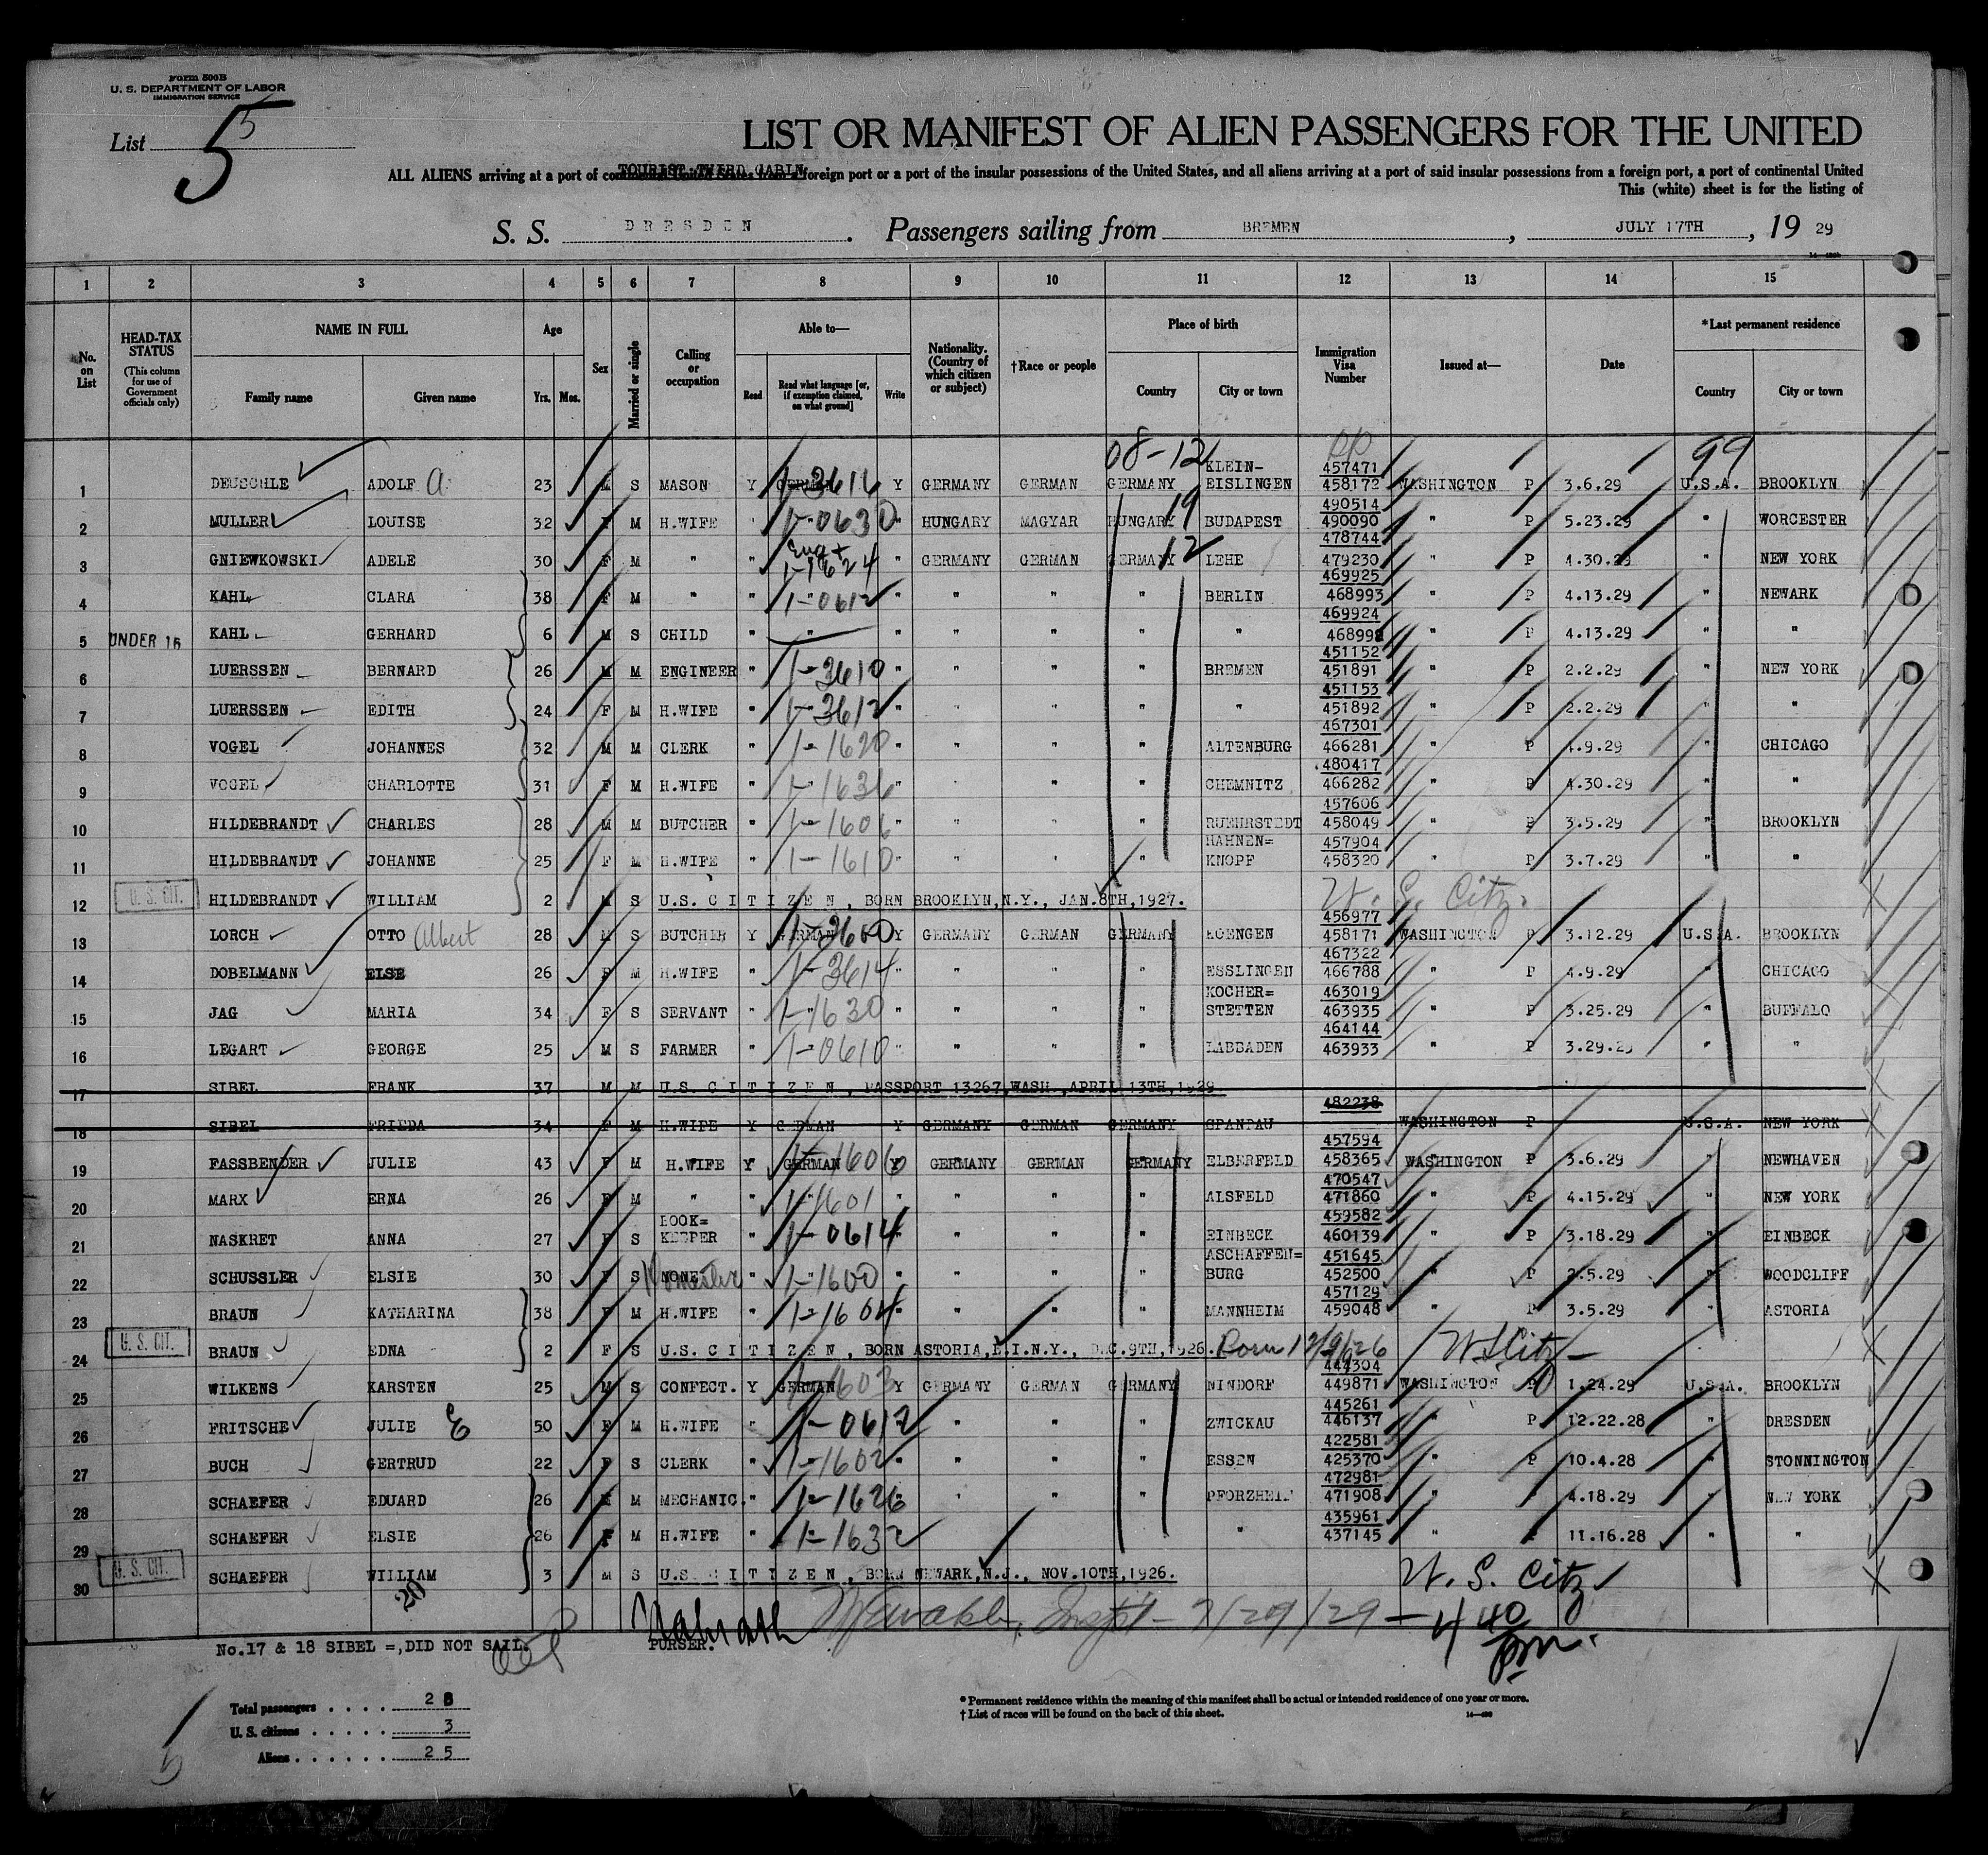 Form 500B
U. S. DEPARTMENT OF LABOR
IMMIGRATION SERVICE
List 5
5
LIST OR MANIFEST OF ALIEN PASSENGERS FOR THE UNITED
TOURIST THIRD CABIN
ALL ALIENS arriving at a port of continental United States from a foreign port or a port of the insular possessions of the United States, and all aliens arriving at a port of said insular possessions from a foreign port, a port of continental United
This (white) sheet is for the listing of
S. S. DRESDEN. Passengers sailing from BREMEN, JULY 17TH, 19 29
1 2 3 4 5 6 7 8 9 10 11 12 13 14 15
No. on List
HEAD-TAX STATUS (This column for use of Government officials only)
NAME IN FULL Family name Given name
Age Yrs. Mos.
Sex
Married or single
Calling or occupation
Able to— Read Read what language [or, if exemption claimed, on what ground] Write
Nationality. (Country of which citizen or subject)
†Race or people
Place of birth Country City or town
Immigration Visa Number
Issued at—
Date
*Last permanent residence Country City or town
08-12 99
KLEIN- 457471
1 DEUSCHLE ADOLF a 23 M S MASON Y GERMAN 1-3616 Y GERMANY GERMAN GERMANY EISLINGEN 458172 WASHINGTON P 3.6.29 U.S.A. BROOKLYN
490514
2 MULLER LOUISE 32 F M H.WIFE " 1-0630 " HUNGARY MAGYAR HUNGARY 19 BUDAPEST 490090 " P 5.23.29 " WORCESTER
478744
3 GNIEWKOWSKI ADELE 30 F M " " Eng + 1-1624 " GERMANY GERMAN GERMANY 12 LEHE 479230 " P 4.30.29 " NEW YORK
469925
4 KAHL CLARA 38 F M " " 1-0612 " " " " BERLIN 468993 " P 4.13.29 " NEWARK
469924
5 UNDER 16 KAHL GERHARD 6 M S CHILD " " " " " " " 468992 " P 4.13.29 " "
451152
6 LUERSSEN BERNARD 26 M M ENGINEER " 1-3610 " " " " BREMEN 451891 " P 2.2.29 " NEW YORK
451153
7 LUERSSEN EDITH 24 F M H.WIFE " 1-3612 " " " " " 451892 " P 2.2.29 " "
467301
8 VOGEL JOHANNES 32 M M CLERK " 1-1620 " " " " ALTENBURG 466281 " P 4.9.29 " CHICAGO
480417
9 VOGEL CHARLOTTE 31 F M H.WIFE " 1-1636 " " " " CHEMNITZ 466282 " P 4.30.29 " "
457606
10 HILDEBRANDT CHARLES 28 M M BUTCHER " 1-1606 " " " " RUEHRSTEDT 458049 " P 3.5.29 " BROOKLYN
HAHNEN= 457904
11 HILDEBRANDT JOHANNE 25 F M H.WIFE " 1-1610 " " " " KNOPF 458320 " P 3.7.29 " "
12 U. S. CIT. HILDEBRANDT WILLIAM 2 M S U.S. CITIZEN, BORN BROOKLYN, N.Y., JAN.8TH,1927. U. S. Citz.
456977
13 LORCH OTTO Albert 28 M S BUTCHER Y GERMAN 1-3600 Y GERMANY GERMAN GERMANY 458171 WASHINGTON P 3.12.29 U.S.A. BROOKLYN
467322
14 DOBELMANN ELSE 26 F M H.WIFE " 1-3614 " " " " ESSLINGEN 466788 " P 4.9.29 " CHICAGO
KOCHER= 463019
15 JAG MARIA 34 F S SERVANT " 1-1630 " " " " STETTEN 463935 " P 3.25.29 " BUFFALO
464144
16 LEGART GEORGE 25 M S FARMER " 1-0610 " " " " LABBADEN 463933 " P 3.29.29 " "
17 SIBEL FRANK 37 M M U.S. CITIZEN, PASSPORT 13267,WASH.,APRIL 13TH,1929
482238
18 SIBEL FRIEDA 34 F M H.WIFE Y GERMAN Y GERMANY GERMAN GERMANY SPANDAU WASHINGTON P U.S.A. NEW YORK
457594
19 FASSBENDER JULIE 43 F M H.WIFE Y GERMAN 1-1606 Y GERMANY GERMAN GERMANY ELBERFELD 458365 WASHINGTON P 3.6.29 " NEWHAVEN
470547
20 MARX ERNA 26 F M " " 1-1601 " " " " ALSFELD 471860 " P 4.15.29 " NEW YORK
BOOK= 459582
21 NASKRET ANNA 27 F S KEEPER " 1-0614 " " " " EINBECK 460139 " P 3.18.29 " EINBECK
ASCHAFFEN= 451645
22 SCHUSSLER ELSIE 30 F S NONE Domestic " 1-1600 " " " " BURG 452500 " P 2.5.29 " WOODCLIFF
457129
23 BRAUN KATHARINA 38 F M H.WIFE " 1-1604 " " " " MANNHEIM 459048 " P 3.5.29 " ASTORIA
24 U. S. CIT. BRAUN EDNA 2 F S U.S. CITIZEN, BORN ASTORIA,L.I.N.Y., DEC.9TH,1926. Born 12/9/26 U S Citz -
444304
25 WILKENS KARSTEN 25 M S CONFECT. Y GERMAN 1-1603 Y GERMANY GERMAN GERMANY NINDORF 449871 WASHINGTON P 1.24.29 U.S.A. BROOKLYN
445261
26 FRITSCHE JULIE E 50 F M H.WIFE " 1-0612 " " " " ZWICKAU 446137 " P 12.22.28 " DRESDEN
422581
27 BUCH GERTRUD 22 F S CLERK " 1-1602 " " " " ESSEN 425370 " P 10.4.28 " STONNINGTON
472981
28 SCHAEFER EDUARD 26 M M MECHANIC. " 1-1626 " " " " PFORZHEIM 471908 " P 4.18.29 " NEW YORK
435961
29 SCHAEFER ELSIE 26 F M H.WIFE " 1-1632 " " " " " 437145 " P 11.16.28 " "
30 U. S. CIT. SCHAEFER WILLIAM 3 M S U.S. CITIZEN, BORN NEWARK,N.J., NOV.10TH,1926. U. S. Citz
20 7/29/29 - 4 40 pm.
No.17 & 18 SIBEL =,DID NOT SAIL. PURSER.
Total passengers . . . . 28
U. S. citizens . . . . . 3
Aliens . . . . . . 25
* Permanent residence within the meaning of this manifest shall be actual or intended residence of one year or more.
† List of races will be found on the back of this sheet.